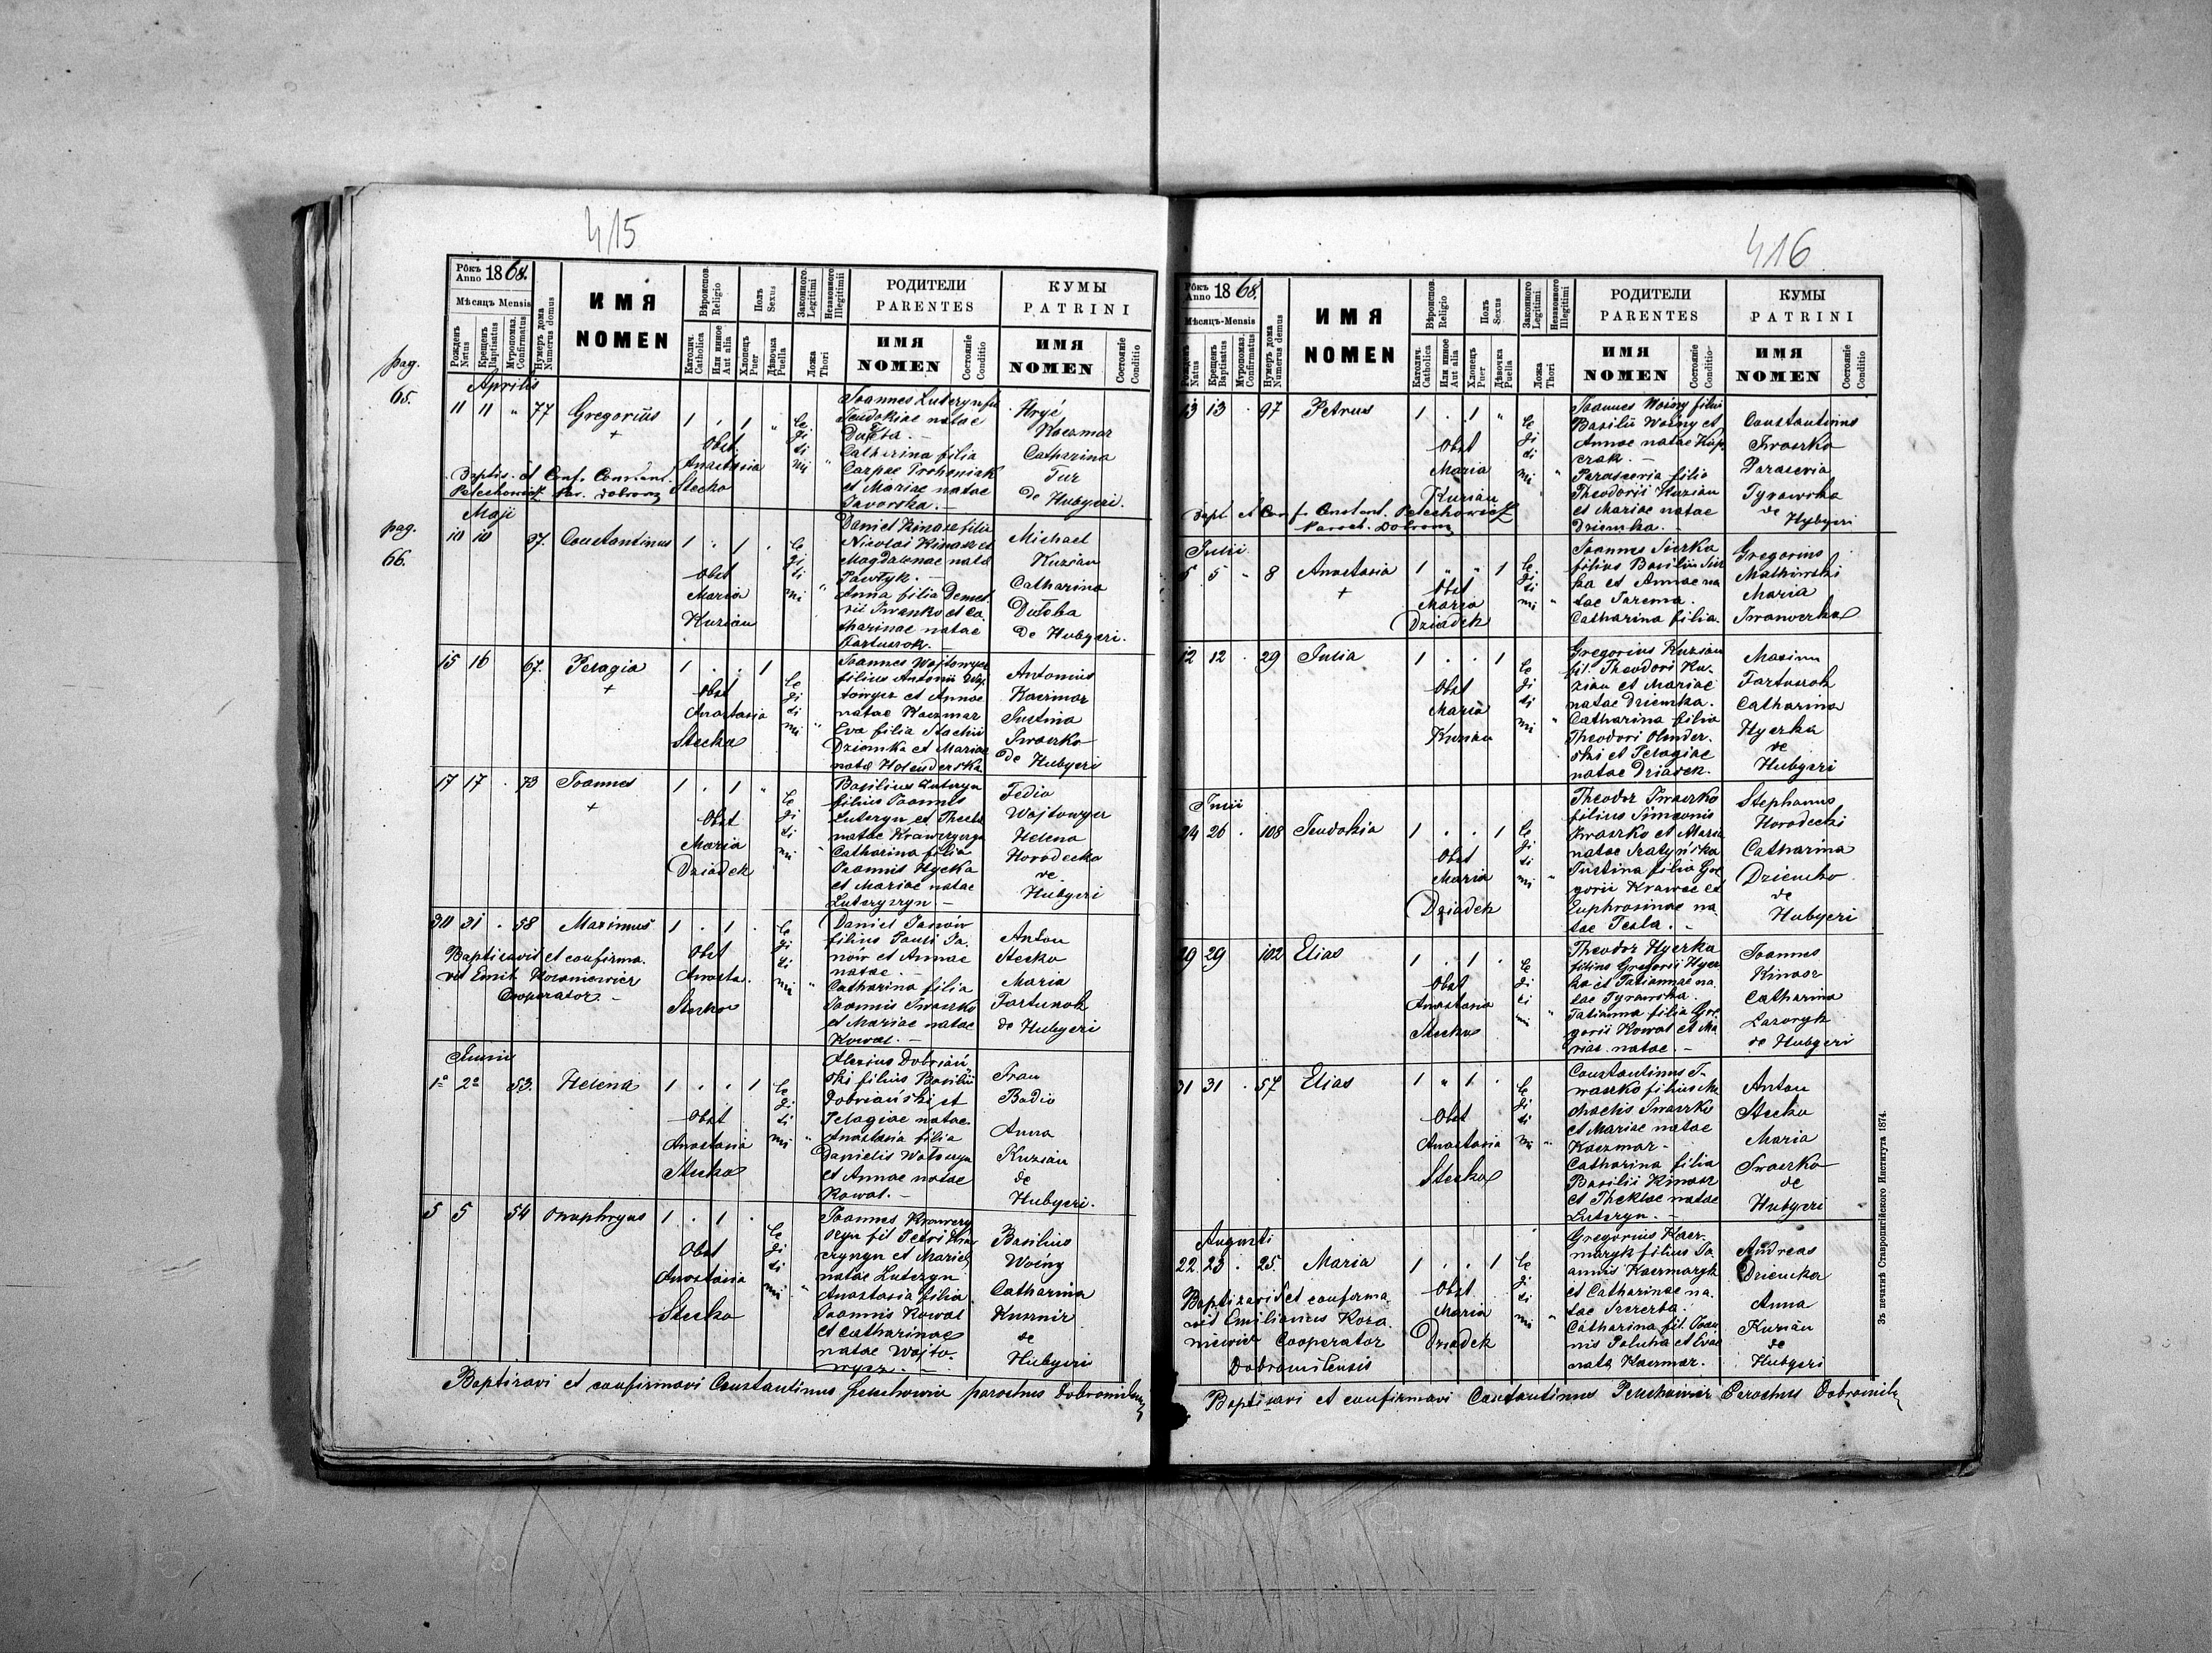 415
Рôкъ Anno 1868.
Мѣсяцъ Mensis
Рожденъ Natus
Крещенъ Baptisatus
Муропомаз. Confirmatus
Нумеръ дома Numerus domus
ИМЯ NOMEN
Вѣроиспов. Religio
Католич. Catholica
Или иное Aut alia
Полъ Sexus
Хлопецъ Puer
Дѣвочка Puella
Законного Legitimi
Незаконного Illegitimi
Ложа Thori
РОДИТЕЛИ PARENTES
ИМЯ NOMEN
Состояніе Conditio
КУМЫ PATRINI
ИМЯ NOMEN
Состояніе Conditio
pag. 65.
Aprilis
11 11 " 77 Gregorius 1 . 1 "
+
Obst.
Anastasia
Stecko
legitimi
Joannes Luteryn
Teudokiae natae
Catharina filia
et Mariae natae
Javorska. –
Hryć
Kaczmar
Catharina
Tur
de Hubyczi.
Baptis. et Conf. Constant.
Petechowicz Par. Dobrom
Maji
pag. 66.
10 10 37. Constantinus 1 . 1 .
Obst
Maria
Kuzian
legitimi
Daniel Kinasz filiu
Nicolai Kinasz et
Magdalenae nata
Pawlyk. –
Anna filia Demet
rii Iwanko et Ca
tharinae natae
Fartuszok. –
Michael
Kuzian
Catharina
de Hubyczi.
15 16 67. Pelagia 1 . . 1
+
Obst
Anastasia
Stecko
legitimi
Joannes Wojtowycz
filius Antonii Woj
towycz et Annae
natae Kaczmar
Eva filia Stachii
Dziomka et Mariae
nata Holenderska
Antonius
Kaczmar
Justina
Iwaszko
de Hubyczi
17 17 . 73 Joannes 1 . 1 "
+
Obst
Maria
Dziadek
legitimi
Basilius Luteryn
filius Joannis
Luteryn et Theclae
natae
Catharina filia
Joannis Hycka
et Mariae natae
Fedio
Wojtowycz
Helena
Horodecka
de
Hubyczi
30 31 . 58 Maximus 1 . 1 .
Obst
Anasta.
Stecko
legitimi
Daniel Janów
filius Pauli Ja.
nów et Annae
natae. –
Catharina filia
Joannis Iwaszko
et Mariae natae
Kowal. –
Anton
Stecko
Maria
Fartuszok
de Hubyczi
Baptisavit et confirma.
vit Emil. Koraniewicz
Cooperator –
Junii
1º 2º 53. Helena 1 . . 1
Obst
Anastasia
Stecko
legitimi
Alexius Dobriań
ski filius Basilii
Dobriański et
Pelagiae natae.
Anastasia filia
Danielis
et Annae natae
Kowal. –
Ivan
Badio
Anna
Kuzian
de
Hubyczi.
5 5 54 Onuphryus 1 . 1 .
Obst
Anastasia
Stecko
legitimi
Joannes
natae Luteryn
Anastasia filia
Joannis Kowal
et Catharinae
natae Wojto.
wycz. –
Basilius
Woźny
Catharina
Kusznir
de
Hubyczi
Baptizavi et confirmavi Constantinus Petechowicz parochus Dobromilens
416
Рôкъ Anno 1868.
Мѣсяцъ-Mensis
Рожденъ Natus
Крещенъ Baptisatus
Муропомаз. Confirmatus
Нумеръ дома Numerus domus
ИМЯ NOMEN
Вѣроиспов. Religio
Католич. Catholica
Или иное Aut alia
Полъ Sexus
Хлопецъ Puer
Дѣвочка Puella
Законного Legitimi
Незаконного Illegitimi
Ложа Thori
РОДИТЕЛИ PARENTES
ИМЯ NOMEN
Состояніе Conditio
КУМЫ PATRINI
ИМЯ NOMEN
Состояніе Conditio
13 13 . 97 Petrus 1 . 1 "
Obst
Maria
Kuzian
legitimi
Joannes Woźny filius
Basilii Woźny et
Annae natae Kasp
rzak. –
Parascevia filia
Theodorii Kuzian
et Mariae natae
Dziemka. –
Constantinus
Iwaszko
Parascevia
Tyrawska
de
Hybyczi
Bapt. et Conf. Constant. Petechowicz
Paroch. Dobrom
Julii
5 5 - 8 Anastasia 1 " " 1
+
Obst
Maria
Dziadek
legitimi
Joannes Sierka
filius Basilii Sier
ka et Annae na
tae Jarema.
Catharina filia.
Gregorius
Malkowski
Maria
12 12 . 29 Julia 1 . . 1
Obst
Maria
Kuzian
legitimi
Gregorius Kuzian
fil. Theodori Ku.
zian et Mariae
natae Dziemka.
Catharina filia
Theodori Olender.
ski et Pelagiae
natae Dziadek.
Maxim
Fartuszok
Catharina
Hycrka
de
Hubyczi
Julii
24 26 . 108 Teudokia 1 . . 1
Obst
Maria
Dziadek
legitimi
Theodor Iwaszko
filius Simeonis
Iwaszko et Maria
natae
Justina filia Gre
gorii Krawiec et
Euphrosinae na.
tae Tesla. –
Stephanus
Horodecki
Catharina
Dziemko
de
Hubyczi
29 29 102 Elias 1 . 1 .
Obst
Anastasia
Stecko
legitimi
Theodor Hycrka
filius Gregorii Hycr
ka et Tatiannae na.
tae Tyrawska.
Tatianna filia Gre
gorii Kowal et Ma
riae natae. –
Joannes
Kinasz
Catharina
Lazoryk
de Hubyczi
31 31 . 57 Elias 1 " 1 .
Obst
Anastasia
Stecko
legitimi
Constantinus I.
waszko filius Mi
chaelis Iwaszko
et Mariae natae
Kaczmar –
Catharina filia
Basilii Kinasz
et Theklae natae
Luteryn. –
Anton
Stecko
Maria
Iwaszko
de
Hubyczi
Augusti
22. 23 . 25. Maria 1 . . 1
Obst
Maria
Dziadek
legitimi
Gregorius Kacz.
maryk filius Jo.
annis Kaczmaryk
et Catharinae na.
tae Szczerba.
Catharina fil. Joan
nis Paluha et Evae
nata Kaczmar. –
Andreas
Dziemka
Anna
Kuzian
de
Hubyczi
Baptizavit et confirma
vit Emilianus Kora.
niewicz Cooperator
Dobromilensis
Baptizavi et confirmavi Constantinus Petechowicz Parochus Dobromil
Зъ печатнѣ Ставропигійского Института 1874.